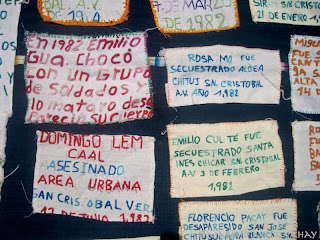 BAL
19
7 DE MARZO
DE 1982
21 DE ENERO 19
En 1982 Emilio
Gua. Chocó
con un grupo
de soldados y
lo mataro desa
Parecio su cuerpo
ROSA MO FUE
SECUESTRADO ALDEA
CHITUS SN. CRISTOBAL
A.V. AÑO 1,982
DOMINGO LEM
CAAL
ASESINADO
AREA URBANA
SAN CRISTOBAL VER.
1982
EMILIO CUL TÉ FUE
SECUESTRADO SANTA
INES CHICAR SN. CRISTOBAL
A-V 3 DE FEBRERO
1,982
FLORENCIO PACAY FUE
DESAPARESIDO SAN JOSE
FUE
ALTA
14 D